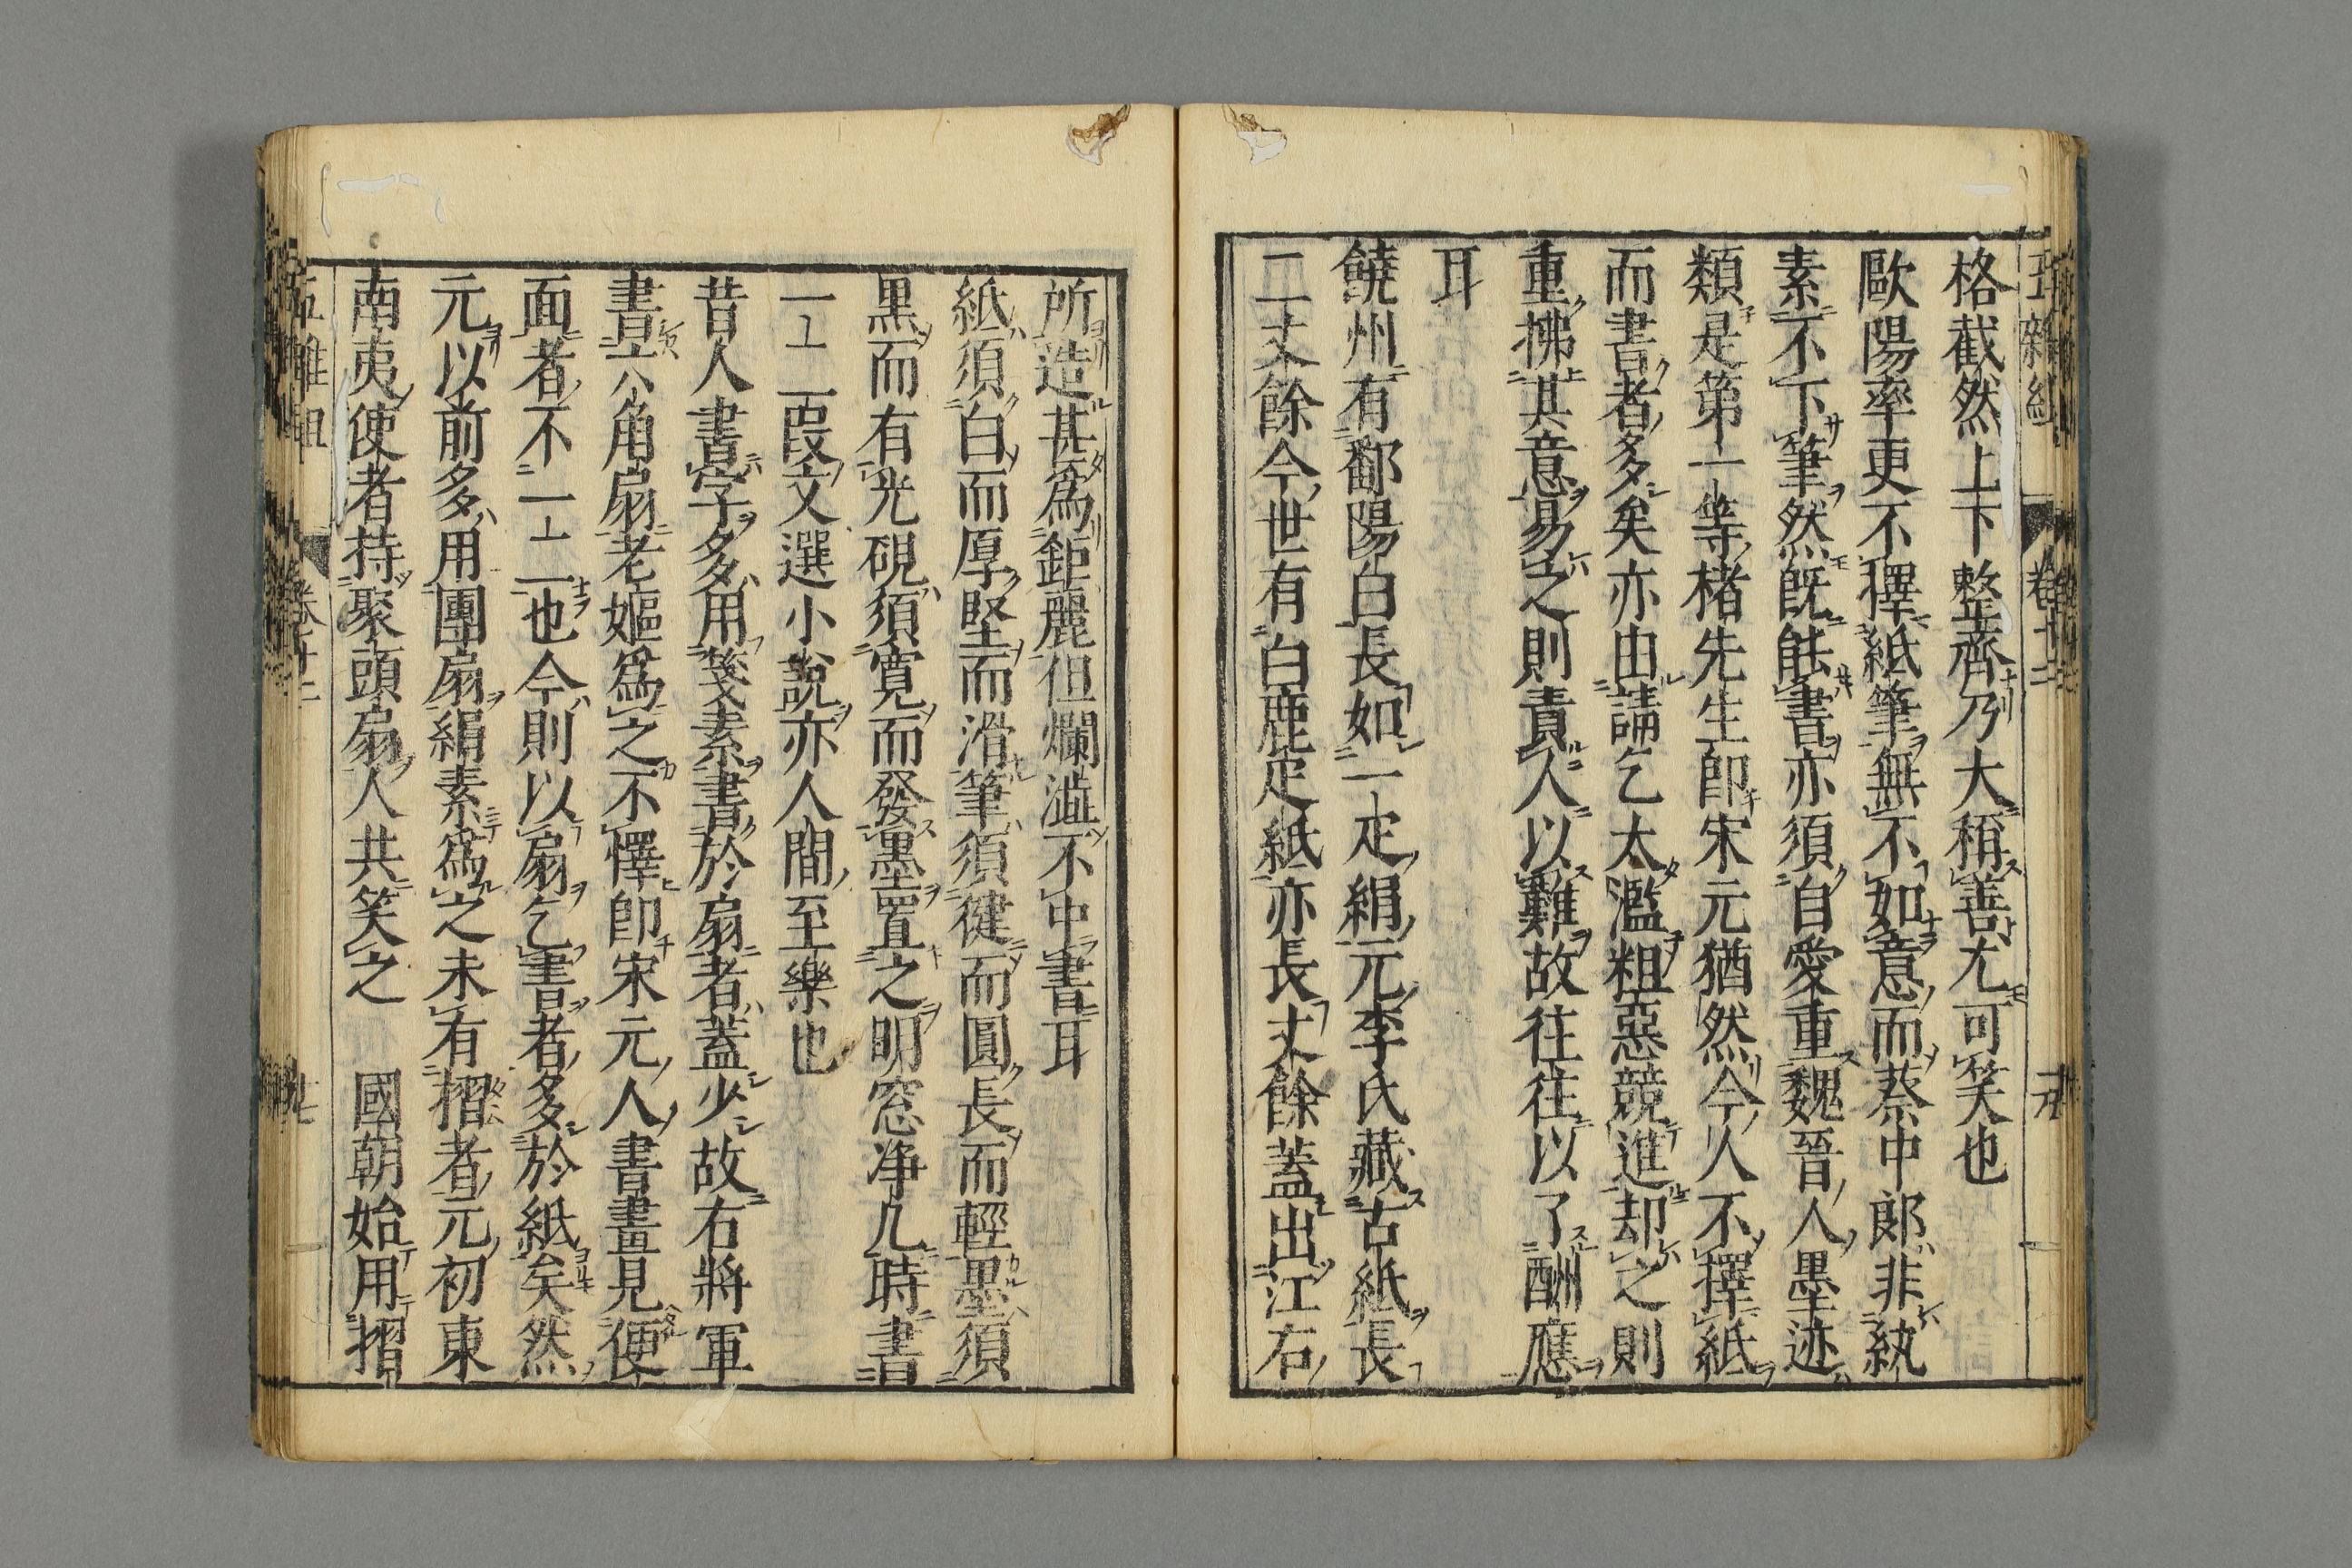 五雜組 卷十二
格截然上下整齊乃大稱善尤可笑也
歐陽率更不擇紙筆無不如意而蔡中郎非紈
素不下筆然旣能書亦須自愛重魏晉人墨迹
類是第一等楮先生卽宋元猶然今人不擇紙
而書者多矣亦由請乞太濫粗惡競進却之則
重拂其意易之則責人以難故往往以了酬應
耳
饒州有鄱陽白長如一疋絹元李氏藏古紙長
二丈餘今世有白鹿定紙亦長丈餘蓋出江右
所造甚爲鉅麗但爛澁不中書耳
紙須白而厚堅而滑筆須健而圓長而輕墨須
黑而有光硯須寬而發墨置之明窓净几時書
一二段文選小說亦人間至樂也
昔人書字多用箋素書於扇者蓋少故右將軍
書六角扇老嫗爲之不懌卽宋元人書畫見便
面者不一二也今則以扇乞書者多於紙矣然
元以前多用團扇絹素爲之未有摺者元初東
南夷使者持聚頭扇人共笑之　國朝始用摺
五雜組 卷十二